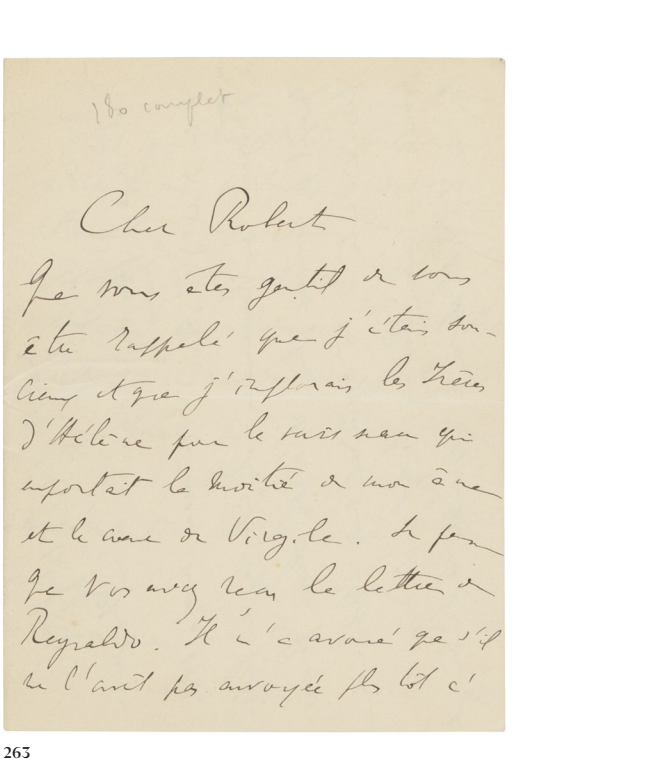 180 complet
Cher Robert
Que vous êtes gentil de vous
être rappelé que j'étais sou-
cieux et que j'implorais les frères
d'Hélène pour le vaisseau qui
emportait la moitié de mon âme
et le cœur de Virgile. Je pense
que vous avez reçu la lettre de
Reynaldo. Il m'a avoué que s'il
ne l'avait pas envoyée plus tôt c'
263